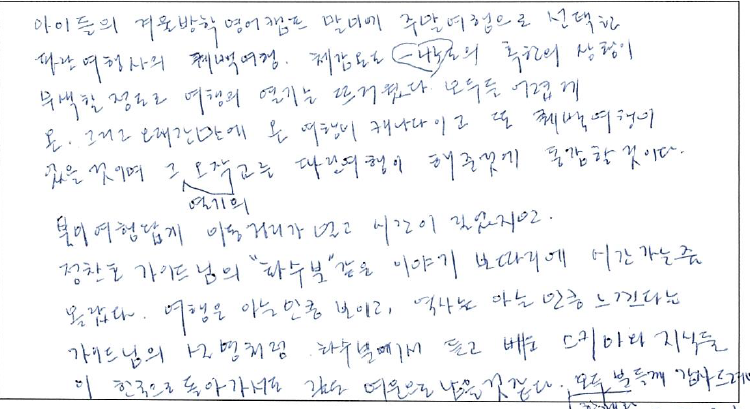 아이들의 겨울방학 영어캠프 말미에 주말여행으로 선택한
파란여행사의 퀘백여행. 체감온도 -나도의 혹한의 상황이
무색할 정도로 여행의 열기는 뜨거웠다. 모두들 어렵게
온. 그리고 오래간만에 온 여행이 캐나다이고 또 퀘백여행이
었을 것이며 그 오작교는 파란여행이 해준것에 동감할 것이다.
열기의
북미여행답게 이동거리가 멀고 시간이 길었지만.
정찬호 가이드님의 "화수분" 같은 이야기 보따리에 시간가는줄
몰랐다. 여행은 아는만큼 보이고, 역사는 아는만큼 느낀다는
가이드님의 설명처럼 화수분에서 듣고 배운 지식들
이 한국으로 돌아가서도 감도 여운으로 남을것 같다. 모두 분들께 감사드려